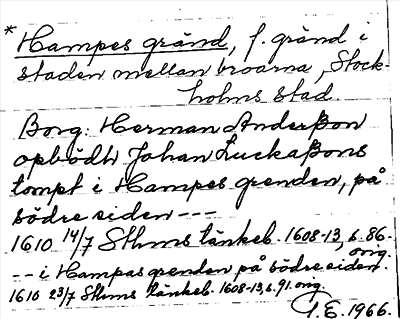 * Hampes gränd, f. gränd i
staden mellan broarna, Stock-
holms stad.
Borg. Herman Anderßon
opbödh Johan Luckaßons
tompt i Hampes grenden, på
södre siden ---
1610 14/7 Sthms tänkeb. 1608-13, s. 86.
orig.
-- i Hampas grenden på södre siden.
1610 23/7 Sthms tänkeb. 1608-13, s. 91. orig.
G.E. 1966.